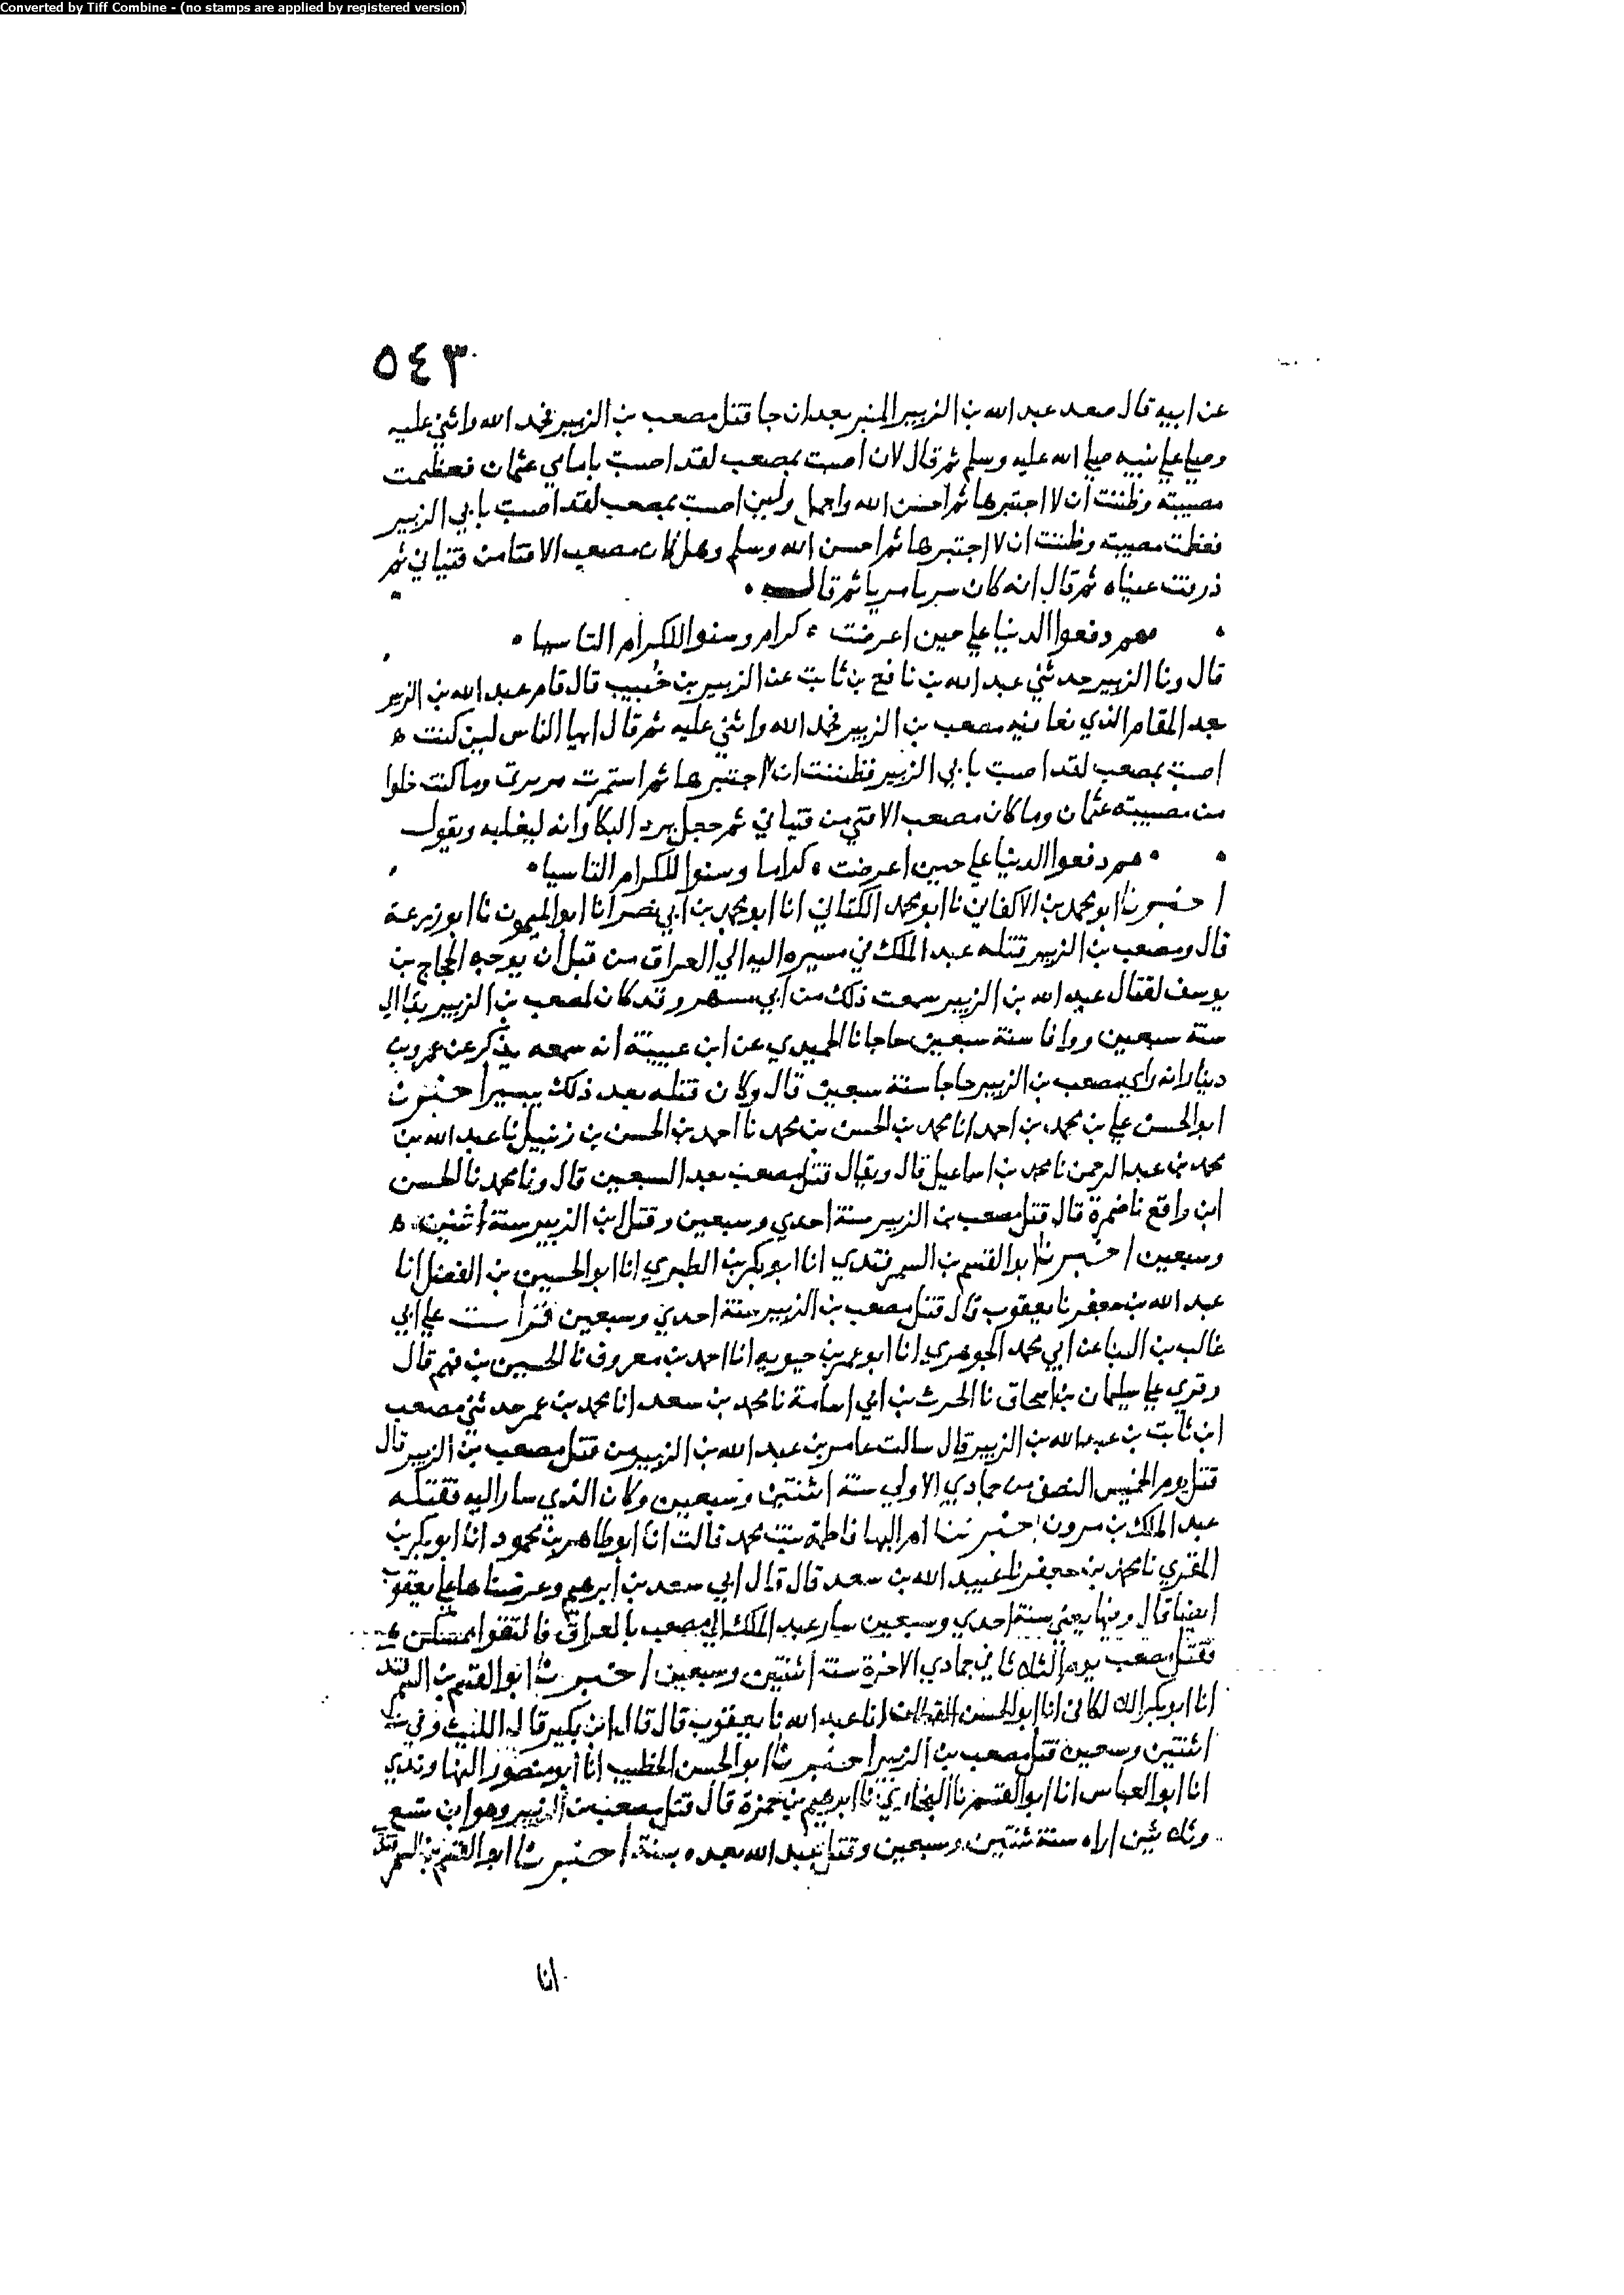 Converted by Tiff Combine - (no stamps are applied by registered version)
٥٤٣
عن ابيه قال صعد عبد الله بن الزبير المنبر بعد ان جا قتل مصعب بن الزبير فحمد الله واثني عليه
وصلي علي نبيه صلي الله عليه وسلم ثم قال لان اصبت بمصعب لقد اصبت بامامي عثمان فعظمت
مصيبته وظننت ان لا اجتبرها ثم احسن الله واجمل ولين اصبت بمصعب لقد اصبت بابي الزبير
فعظمت مصيبته وظننت ان لا اجتبرها ثم احسن الله وسلم وهل كان مصعب الا فتا من فتياني ثم
ذرفت عيناه ثم قال انه كان سريا مريا ثم قال
هم دفعوا الدنيا علي حين اعرضت كرام وسنوا للكرام التاسيا
قال ونا الزبير حدثني عبد الله بن نافع بن ثابت عن الزبير بن خبيب قال قام عبد الله بن الزبير
بعد المقام الذي نعا فيه مصعب بن الزبير فحمد الله واثني عليه ثم قال ايها الناس لين كنت
اصبت بمصعب لقد اصبت بابي الزبير فظننت ان لا اجتبرها ثم استمرت مريرتي وما كنت خلوا
من مصيبته عثمان وما كان مصعب الا فتي من فتياني ثم جعل يرد البكا وانه ليغلبه ويقول
هم دفعوا الدنيا علي حين اعرضت كراما وسنوا للكرام التاسيا
اخبرنا ابو محمد بن الاكفاني نا ابو محمد الكتاني انا ابو محمد بن ابي نصر انا ابو الميمون نا ابو زرعة
قال ومصعب بن الزبير قتله عبد الملك في مسيره اليه الي العراق من قبل ان يوجه الحجاج بن
يوسف لقتال عبد الله بن الزبير سمعت ذلك من ابي مسهر وقد كان لمصعب بن الزبير بقا الي
سنة سبعين ووافا سنة سبعين حاجا نا الحميدي عن ابن عيينة انه سمعه يذكر عن عمرو بن
دينار انه راي مصعب بن الزبير حاجا سنة سبعين قال وكان قتله بعد ذلك بيسير اخبرنا
ابو الحسن علي بن محمد بن احمد انا محمد بن الحسن بن محمد نا احمد بن الحسن بن زنبيل نا عبد الله بن
محمد بن عبد الرحمن نا محمد بن اسماعيل قال ويقال قتل مصعب بعد السبعين قال ونا محمد نا الحسن
ابن واقع نا ضمرة قال قتل مصعب بن الزبير سنة احدي وسبعين وقتل ابن الزبير سنة اثنين
وسبعين اخبرنا ابو القسم بن السمرقندي انا ابو بكر بن الطبري انا ابو الحسين بن الفضل انا
عبد الله بن جعفر نا يعقوب قال قتل مصعب بن الزبير سنة احدي وسبعين قرات علي ابي
غالب بن البنا عن ابي محمد الجوهري انا ابو عمر بن حيويه انا احمد بن معروف نا الحسين بن فهم قال
وقري علي سليمان بن اسحاق نا الحرث بن ابي اسامة نا محمد بن سعد انا محمد بن عمر حدثني مصعب
ابن ثابت بن عبد الله بن الزبير قال سالت عامر بن عبد الله بن الزبير من قتل مصعب بن الزبير قال
قتل يوم الخميس النصف من جمادي الاولي سنة اثنتين وسبعين وكان الذي سار اليه فقتله
عبد الملك بن مرون اخبرتنا ام البها فاطمة بنت محمد قالت انا ابو طاهر بن محمود انا ابو بكر بن
المقري نا محمد بن جعفر نا عبيد الله بن سعد قال قال ابي سعد بن ابرهيم وعرضناها علي يعقوب
ايضا قال وفيها يعني سنة احدي وسبعين سار عبد الملك الي مصعب بالعراق فالتقوا بمسكن
فقتل مصعب يوم الثلاثا في جمادي الاخرة سنة اثنتين وسبعين اخبرنا ابو القسم بن السمرقند
انا ابو بكر اللالكاي انا ابو الحسن القطان انا عبد الله نا يعقوب قال قال ابن بكير قال الليث وفي
اثنتين وسبعين قتل مصعب بن الزبير اخبرنا ابو الحسن الخطيب انا ابو منصور النهاوندي
انا ابو العباس انا ابو القسم نا البخاري نا ابرهيم بن حمزة قال قتل مصعب بن الزبير وهو ابن تسع
وثلاثين اراه سنة ثنتين وسبعين وقتل عبد الله بعده بسنة اخبرنا ابو القسم بن السمرقند
انا